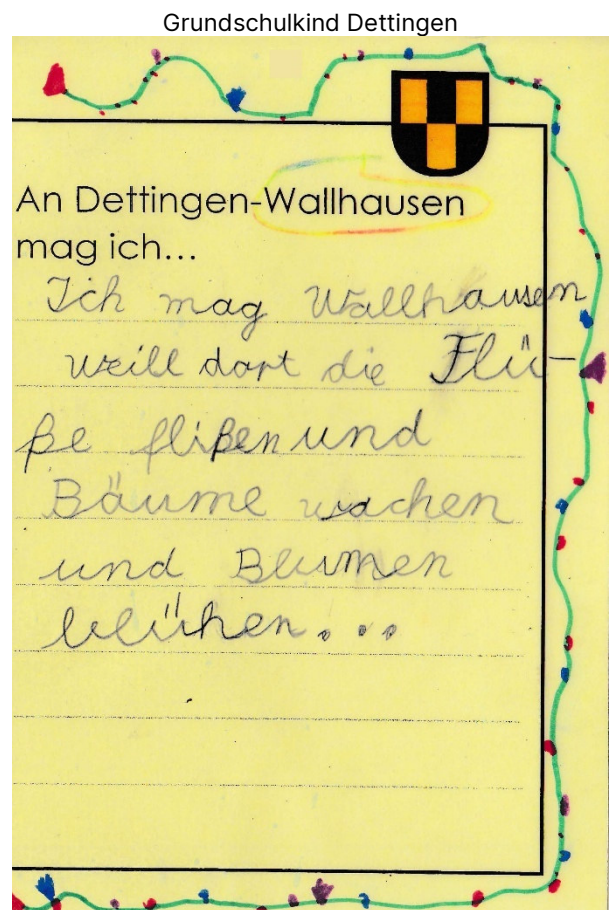 Grundschulkind Dettingen
An Dettingen-Wallhausen
mag ich...
Ich mag Wallhausen
weill dort die Flü-
ße flißen und
Bäume wachen
und Blumen
blühen...